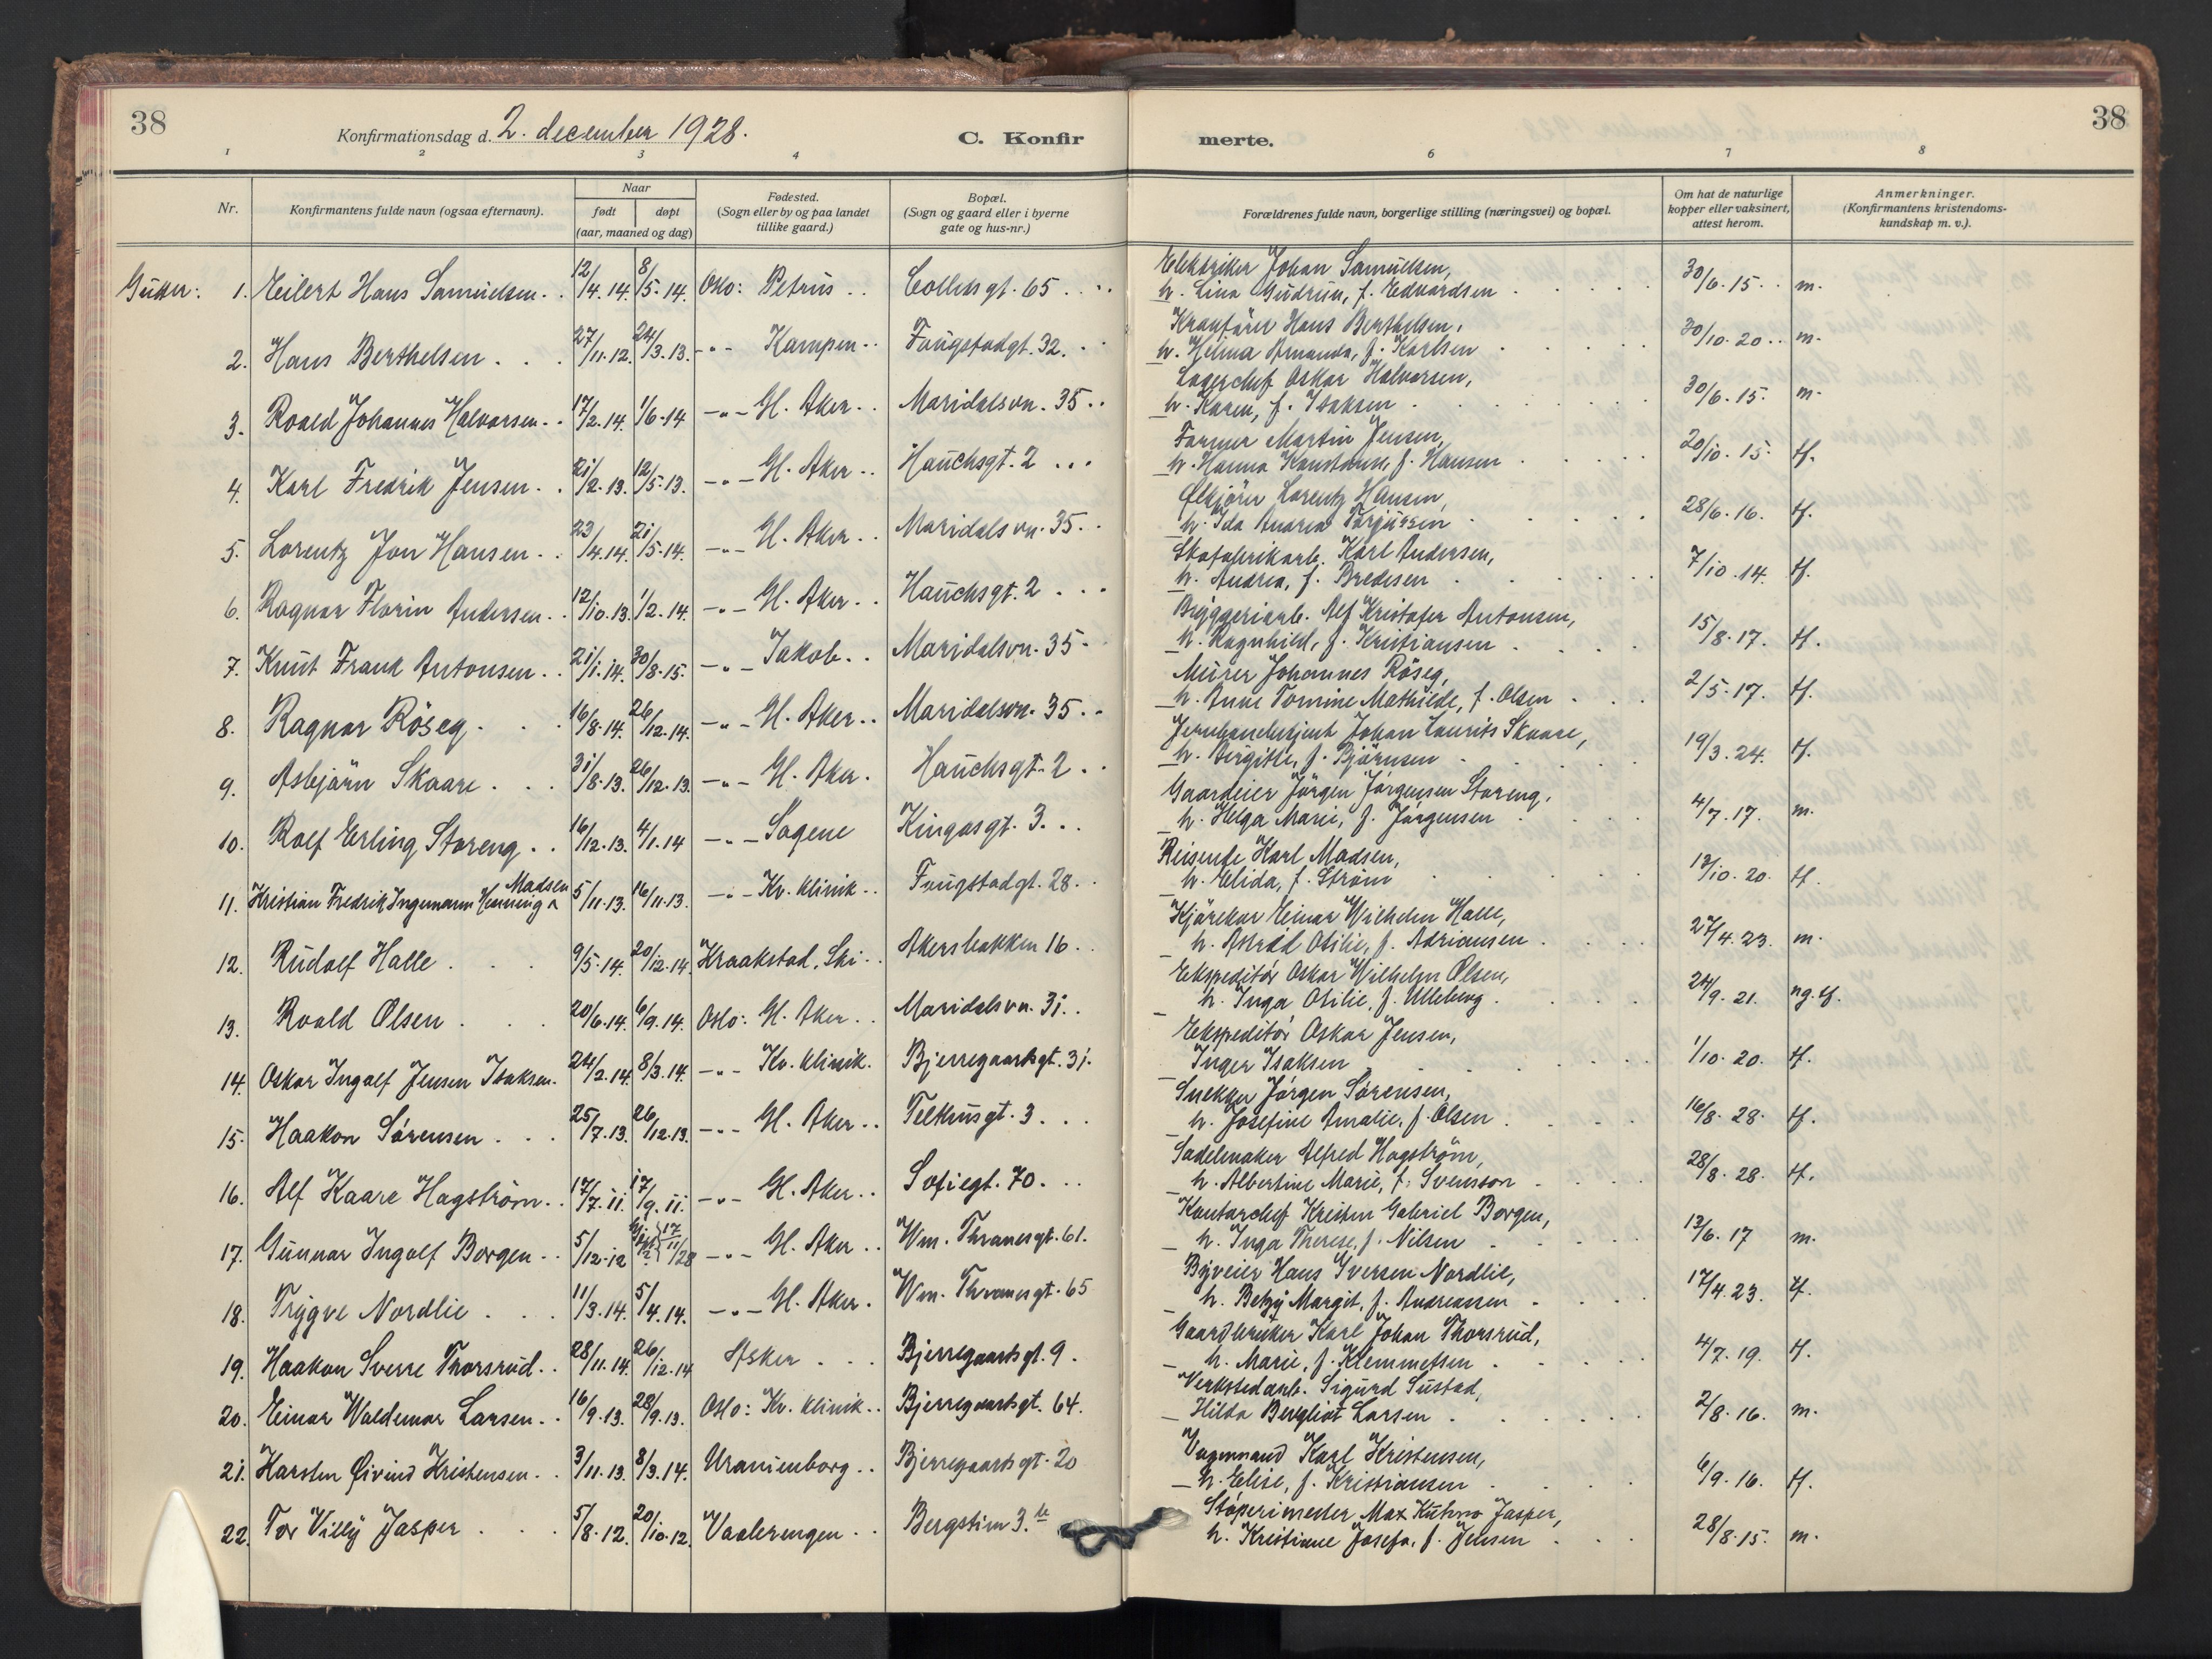 38
Konfirmationsdag d. 2. december 1928.
C. Konfir
merte.
38
1 2 3 4 6 7 8
Nr.
Konfirmantens fulde navn (ogsaa efternavn).
Naar
født døpt
(aar, maaned og dag)
Fødested.
(Sogn eller by og paa landet
tillike gaard.)
Bopæl.
(Sogn og gaard eller i byerne
gate og hus-nr.)
Forældrenes fulde navn, borgerlige stilling (næringsvei) og bopæl.
Om hat de naturlige
kopper eller vaksinert,
attest herom.
Anmerkninger.
(Konfirmantens kristendoms-
kundskap m. v.).
Elektriker Johan Samuelsen,
Gutter: 1. Eilert Hans Samuelsen. 12/4.14. 8/5.14. Oslo: Petrus Colletsgt. 65 h. Lina Gudrun, f. Edvardsen 30/6.15. m.
Kranfører Hans Berthelsen,
2. Hans Berthelsen 27/11.12. 24/3.13. -"- Kampen Fougstadgt. 32. h. Helma Amanda, f. Karlsen 30/10.20. m.
Lagerchef Oskar Halvorsen,
3. Roald Johannes Halvorsen 17/2.14. 1/6.14 -"- Gl. Aker Maridalsvn. 35 h. Karen, f. Isaksen 30/6.15. m.
Former Martin Jensen,
4. Karl Fredrik Jensen 21/2.13. 12/5.13. -"- Gl. Aker Hauchsgt. 2 h. Hanna Konstanse, f. Hansen 20/10.15. tf.
Ølkjører Lorentz Hansen,
5. Lorentz Jon Hansen 23/4.14. 21/5.14. -"- Gl. Aker Maridalsvn. 35 h. Ida Andrea Torjussen 28/6.16. tf.
Skofabrikarb. Karl Andersen,
6. Ragnar Florin Andersen 12/10.13. 1/2.14. -"- Gl. Aker Hauchsgt. 2 h. Andrea, f. Bredesen 7/10.14. tf.
Bryggeriarb. Alf Kristofer Antonsen,
7. Knut Frank Antonsen 21/1.14. 30/8.15. -"- Jakob Maridalsvn. 35 h. Ragnhild, f. Kristiansen 15/8.17. tf.
Murer Johannes Röseg,
8. Ragnar Röseg 16/8.14. 26/12.14. -"- Gl. Aker Maridalsvn. 35 h. Anne Tomine Mathilde, f. Olsen 2/5.17. tf.
Jernbanebetjent Johan Laurits Skaare,
9. Asbjörn Skaare 31/8.13. 26/12.13. -"- Gl. Aker Hauchsgt. 2 h. Birgitte, f. Björnsen 19/3.24. tf.
Gaardeier Jörgen Jörgensen Storeng,
10. Rolf Erling Storeng 16/12.13. 4/1.14 -"- Sagene Kingosgt. 3 h. Helga Marie, f. Jörgensen 4/7.17. m.
Reisende Karl Madsen,
11. Kristian Fredrik Ingemann Henning Madsen 5/11.13. 16/11.13. -"- Kv. klinik Fougstadgt. 28 h. Elida, f. Ström 13/10.20. tf.
Kjörekar Einar Wilhelm Halle,
12. Rudolf Halle 9/5.14. 20/12.14. Kraakstad, Ski Akersbakken 16 h. Astrid Otilie, f. Adriansen 27/4.23. m.
Ekspeditör Oskar Wilhelm Olsen,
13. Roald Olsen 20/6.14. 6/9.14. Oslo: Gl. Aker Maridalsvn. 31 h. Inga Otilie, f. Ulleberg 24/9.21. ng.tf.
Ekspeditör Oskar Jensen,
14. Oskar Ingolf Jensen Isaksen 24/2.14. 8/3.14. -"- Kv. klinik. Bjerregaardsgt. 31 Inger Isaksen 1/10.20. tf.
Snekker Jörgen Sörensen,
15. Haakon Sörensen 25/7.13. 26/12.13. -"- Gl. Aker Telthusgt. 3 h. Josefine Amalie, f. Olsen 16/8.28. tf.
Sadelmaker Alfred Hagström,
16. Alf Kaare Hagström 17/7.11. 17/9.11. -"- Gl. Aker Sofiegt. 70. h. Albertine Marie, f. Svensson 28/8.28. tf.
Kontorchef Kristen Gabriel Borgen,
17. Gunnar Ingolf Borgen 5/12.12 17/11/28 -"- Gl. Aker Wm. Thranesgt. 61. h. Inga Therese, f. Nilsen 13/6.17 m.
Byveier Hans Iversen Nordlie,
18. Trygve Nordlie 11/3.14. 5/4.14. -"- Gl. Aker Wm. Thranesgt. 65 h. Betzy Margit, f. Andreassen 17/4.23. tf.
Gaardbruker Karl Johan Thorsrud,
19. Haakon Sverre Thorsrud 28/11.14. 26/12.14 Asker Bjerregaardsgt. 9. h. Marie, f. Klemmetsen 4/7.19. tf.
Verkstedarb. Sigurd Sustad,
20. Einar Waldemar Larsen 16/9.13. 28/9.13. Oslo: Kv. klinik Bjerregaardsgt. 64. Hilda Bergliot Larsen 2/8.16. m.
Vognmand Karl Kristensen,
21. Karsten Øivind Kristensen 3/11.13. 8/3.14. Uranienborg Bjerregaardsgt. 20 h. Elise, f. Kristiansen 6/9.16. tf.
Stöperimester Max Kuhno Jasper,
22. Tor Villy Jasper 5/8.12. 20/10.12. Vaalerengen Bergstien 3. h. Kristiane Josefa, f. Jensen 28/8.15. m.